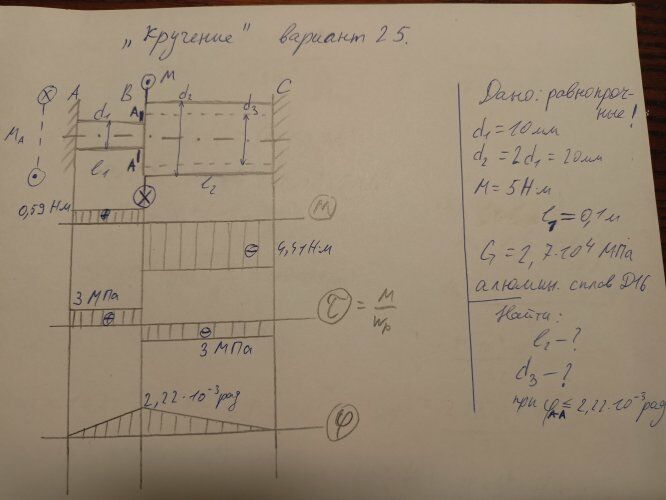 „Кручение" вариант 25.
M
A
B
C
d₁
d₂
d₃
A
A'
M_A
l₁
l₂
0,59 Нм
M
4,41 Нм
3 МПа
τ = M/Wp
3 МПа
2,22·10⁻³ рад
φ
Дано: равнопроч-
ные!
d₁ = 10 мм
d₂ = 2d₁ = 20 мм
M = 5 Н м
l₁ = 0,1 м
G = 2,7·10⁴ МПа
алюмин. сплав Д16
Найти:
l₂ - ?
d₃ - ?
при φ_A-A ≤ 2,22·10⁻³ рад